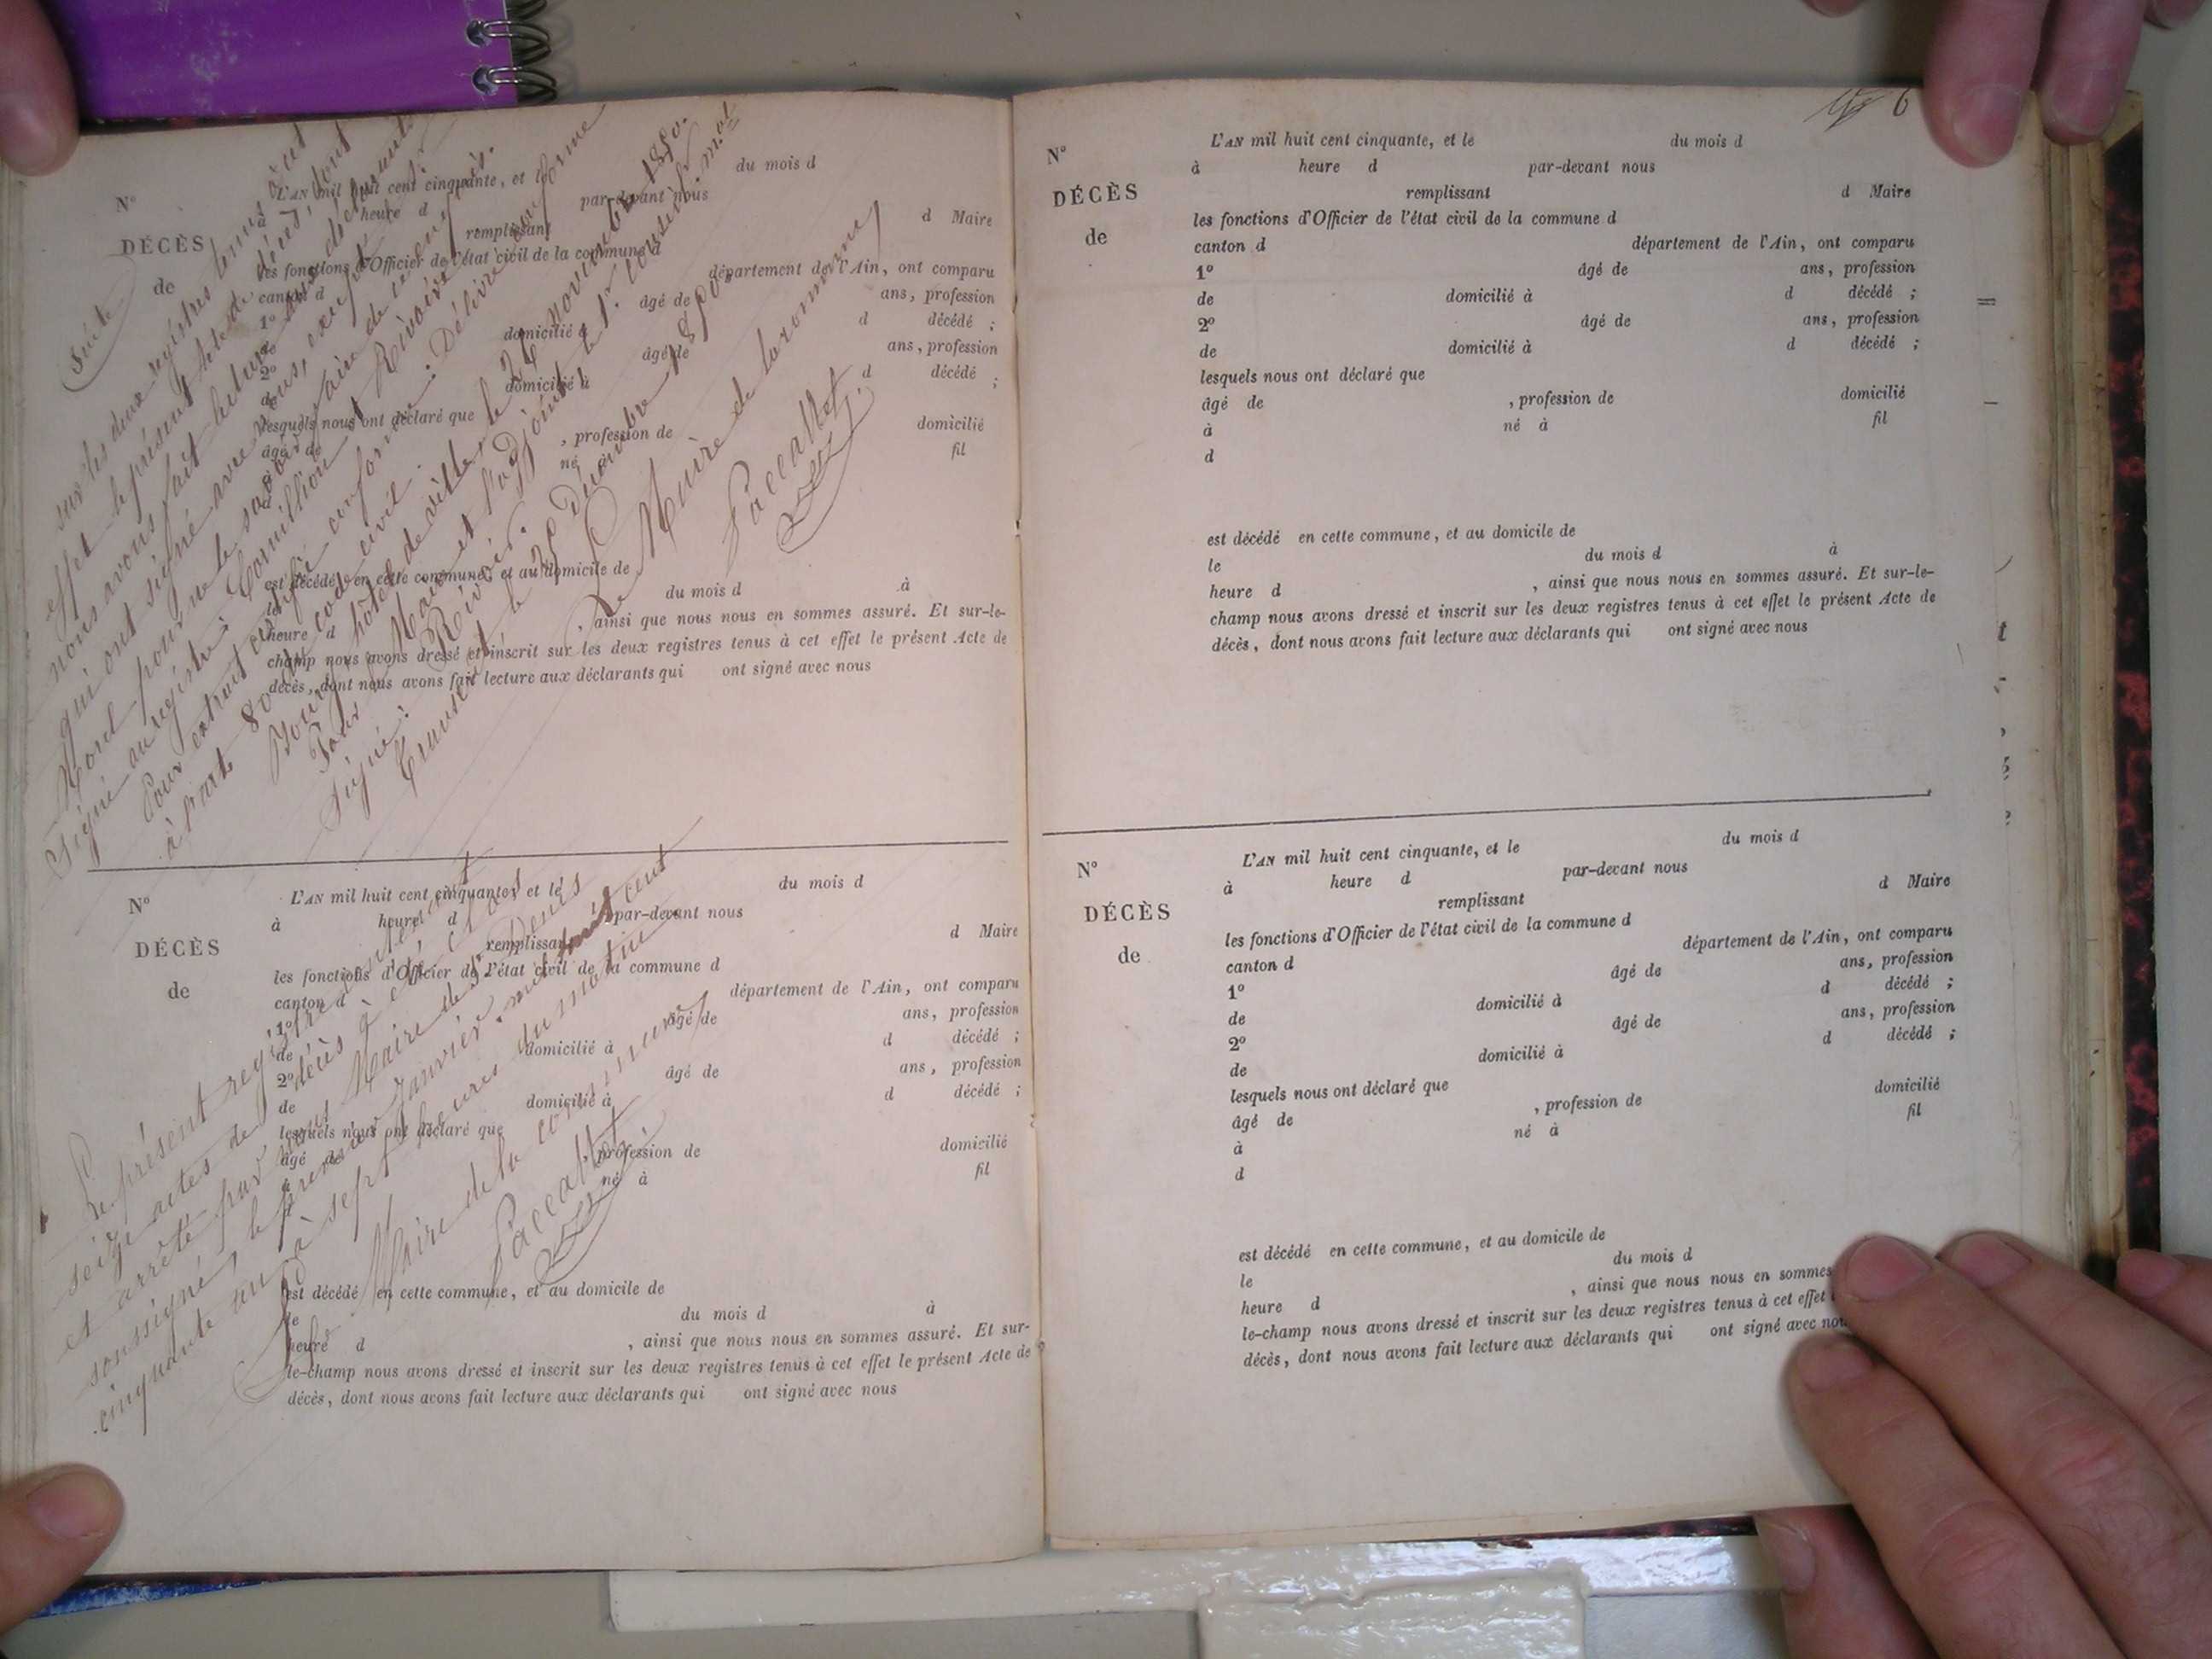 Suite
sur les deux registres tenus à cet
effet le présent acte de décès, dont
nous avons fait lecture aux déclarants
qui ont signé avec nous, excepté
pour ne le savoir faire de ce enquis.
Signé au registre: Convillion et Rivoire
Pour extrait certifié conforme: Délivré en forme
à l'art. 80 du code civil.
Bourg, hôtel de ville, le 26 novembre 1850.
Pour le Maire et l'adjoint, le 1r. Conseiller m.al
Signé: Rivoire.
Transcrit le 20 Décembre 1850.
Le Maire de la commune,
Paccallet
N°
DÉCÈS
de
L'AN mil huit cent cinquante, et le du mois d
à heure d par-devant nous
remplissant d Maire
les fonctions d'Officier de l'état civil de la commune d
canton d département de l'Ain, ont comparu
1° âgé de ans, profession
de domicilié à d décédé ;
2° âgé de ans, profession
de domicilié à d décédé ;
lesquels nous ont déclaré que
âgé de , profession de domicilié
à né à fil
d
est décédé en cette commune, et au domicile de
le du mois d à
heure d , ainsi que nous nous en sommes assuré. Et sur-le-
champ nous avons dressé et inscrit sur les deux registres tenus à cet effet le présent Acte de
décès, dont nous avons fait lecture aux déclarants qui ont signé avec nous
Le présent registre
seize actes de décès a été clos
et arrêté par nous Maire de St. Denis
soussigné, le premier janvier mil huit cent
cinquante un à sept heures du matin
Le Maire de la commune,
Paccallet
N°
DÉCÈS
de
L'AN mil huit cent cinquante, et le du mois d
à heure d par-devant nous
remplissant d Maire
les fonctions d'Officier de l'état civil de la commune d
canton d département de l'Ain, ont comparu
1° âgé de ans, profession
de domicilié à d décédé ;
2° âgé de ans, profession
de domicilié à d décédé ;
lesquels nous ont déclaré que
âgé de , profession de domicilié
à né à fil
est décédé en cette commune, et au domicile de
le du mois d à
heure d , ainsi que nous nous en sommes assuré. Et sur-
le-champ nous avons dressé et inscrit sur les deux registres tenus à cet effet le présent Acte de
décès, dont nous avons fait lecture aux déclarants qui ont signé avec nous
6
N°
DÉCÈS
de
L'AN mil huit cent cinquante, et le du mois d
à heure d par-devant nous
remplissant d Maire
les fonctions d'Officier de l'état civil de la commune d
canton d département de l'Ain, ont comparu
1° âgé de ans, profession
de domicilié à d décédé ;
2° âgé de ans, profession
de domicilié à d décédé ;
lesquels nous ont déclaré que
âgé de , profession de domicilié
à né à fil
d
est décédé en cette commune, et au domicile de
le du mois d à
heure d , ainsi que nous nous en sommes assuré. Et sur-le-
champ nous avons dressé et inscrit sur les deux registres tenus à cet effet le présent Acte de
décès, dont nous avons fait lecture aux déclarants qui ont signé avec nous
N°
DÉCÈS
de
L'AN mil huit cent cinquante, et le du mois d
à heure d par-devant nous
remplissant d Maire
les fonctions d'Officier de l'état civil de la commune d
canton d département de l'Ain, ont comparu
1° âgé de ans, profession
de domicilié à d décédé ;
2° âgé de ans, profession
de domicilié à d décédé ;
lesquels nous ont déclaré que
âgé de , profession de domicilié
à né à fil
d
est décédé en cette commune, et au domicile de
le du mois d
heure d , ainsi que nous nous en sommes
le-champ nous avons dressé et inscrit sur les deux registres tenus à cet effet
décès, dont nous avons fait lecture aux déclarants qui ont signé avec nou